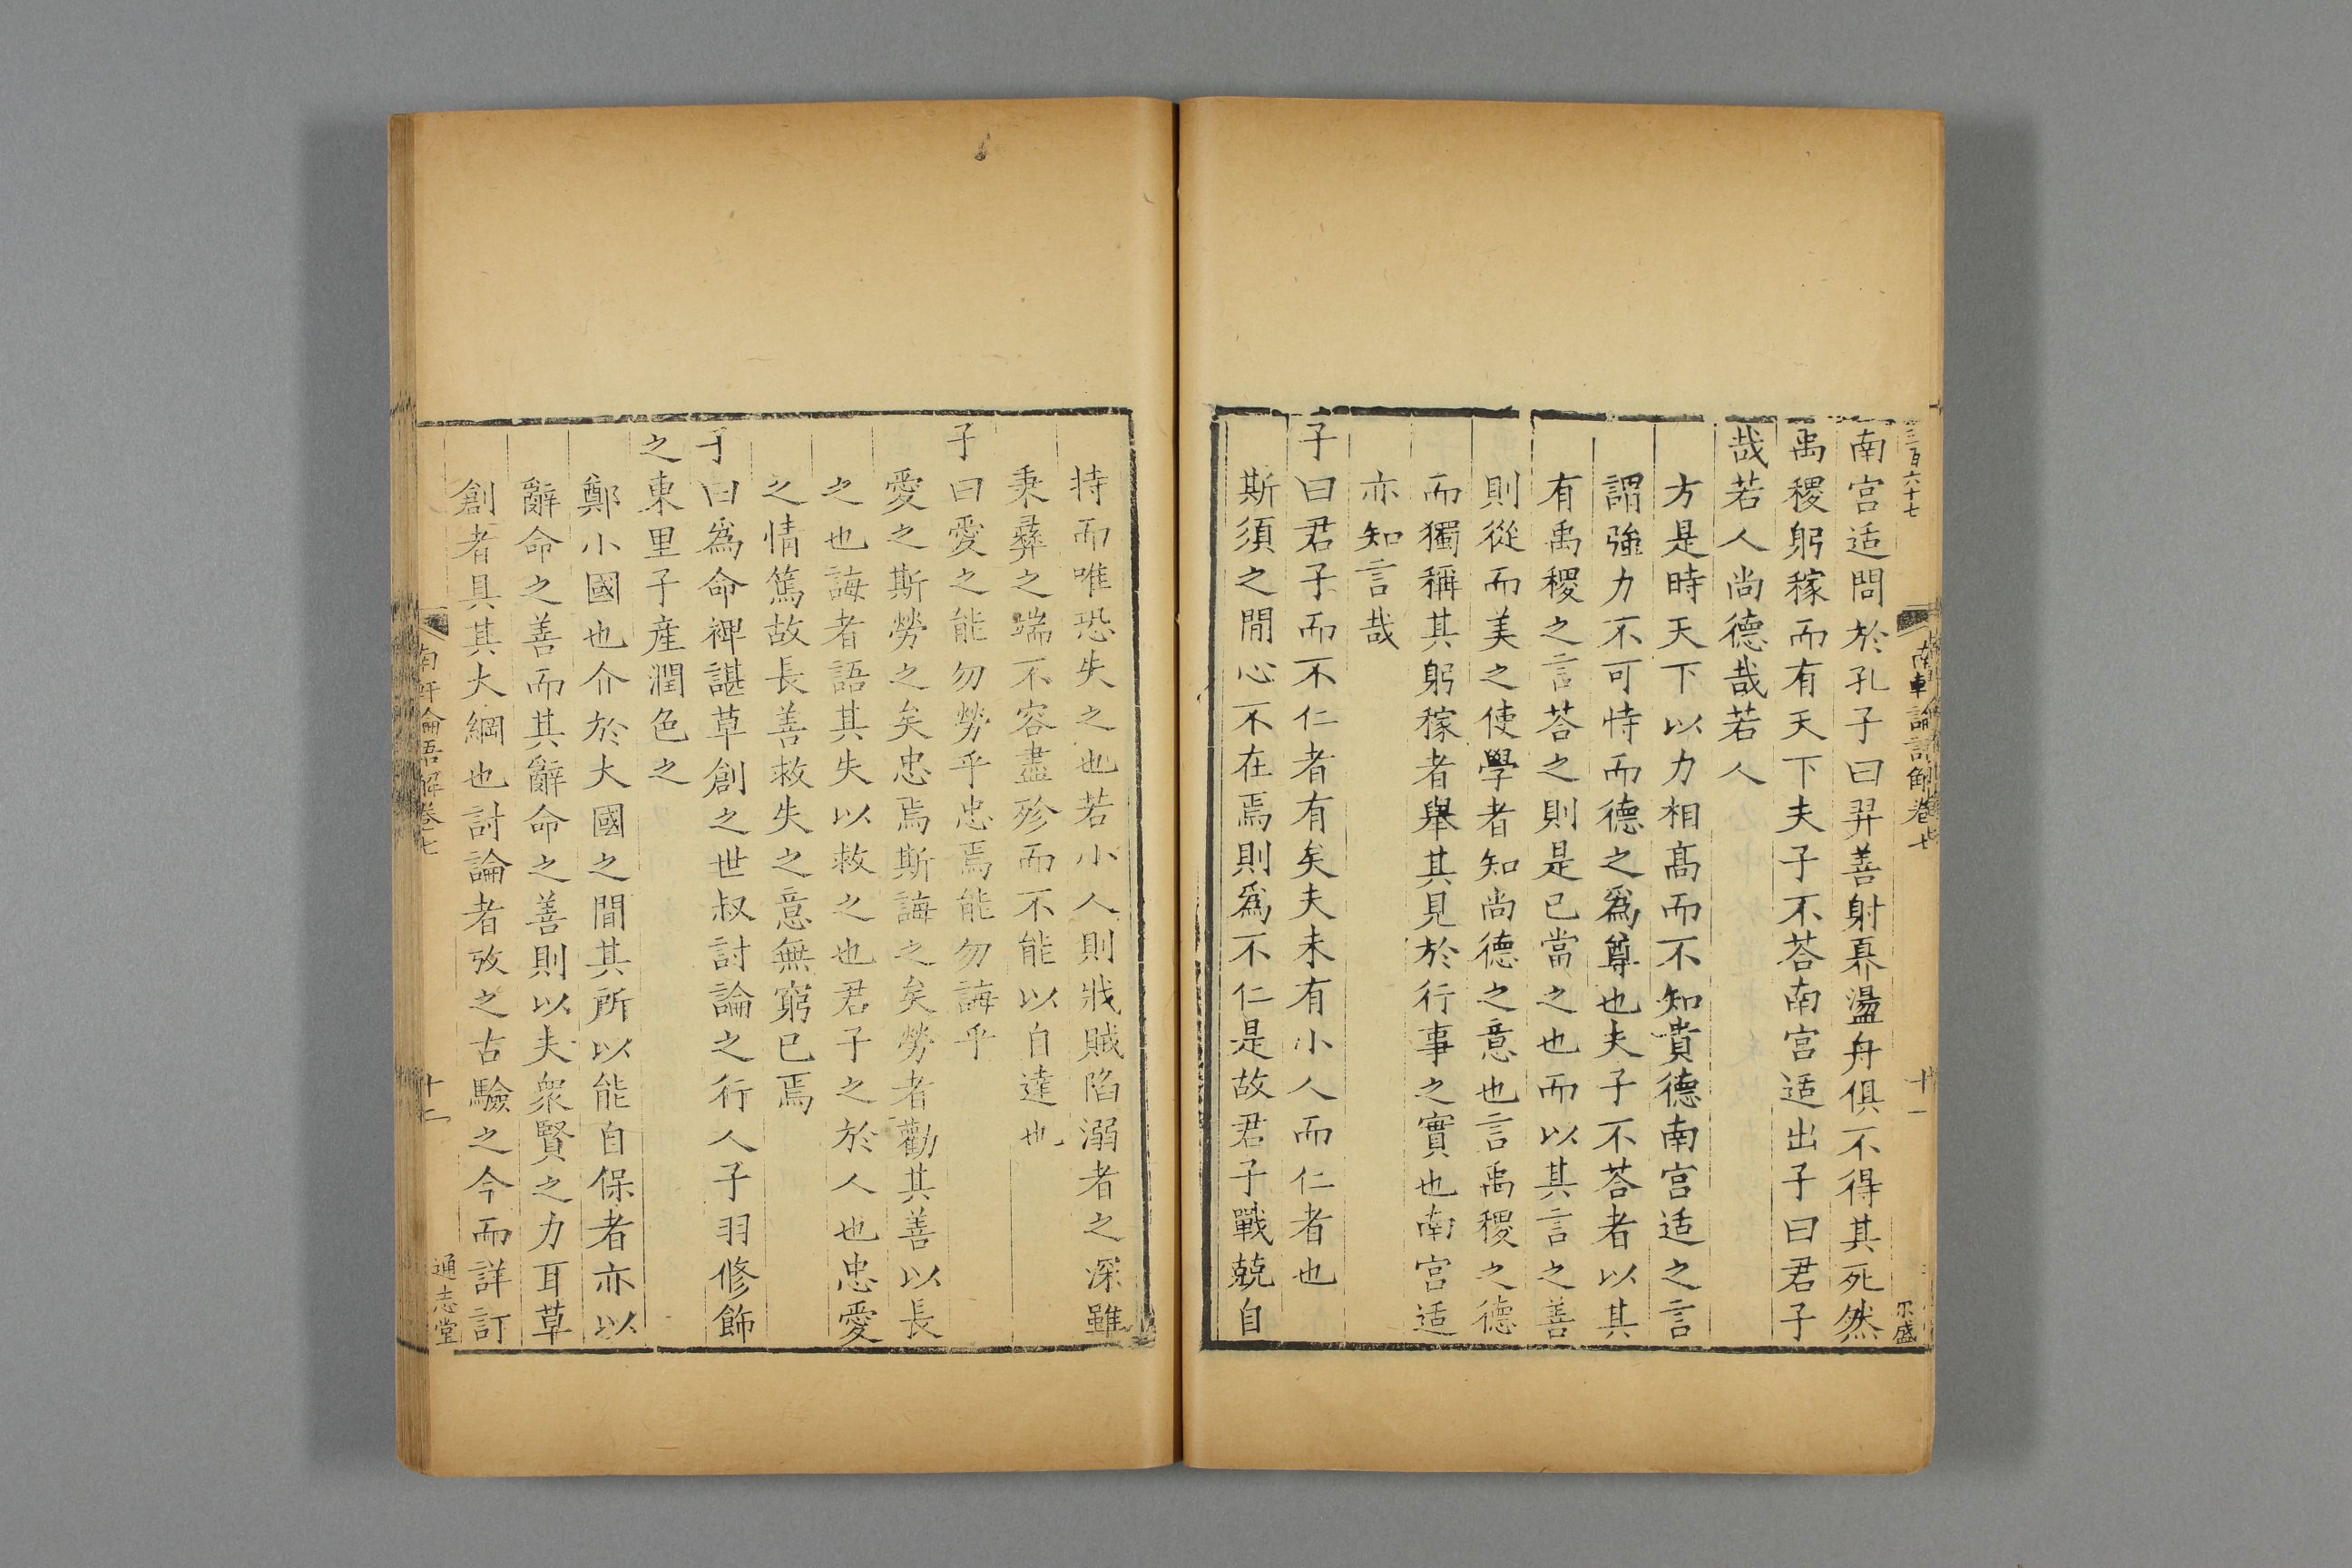 三百六十七
南軒論語解卷七
十一
南宮适問於孔子曰羿善射奡盪舟俱不得其死然
禹稷躬稼而有天下夫子不荅南宮适出子曰君子
哉若人尚德哉若人
方是時天下以力相髙而不知貴德南宮适之言
謂強力不可恃而德之爲尊也夫子不荅者以其
有禹稷之言荅之則是已當之也而以其言之善
則從而美之使學者知尚德之意也言禹稷之德
而獨稱其躬稼者舉其見於行事之實也南宮适
亦知言哉
子曰君子而不仁者有矣夫未有小人而仁者也
斯須之閒心不在焉則爲不仁是故君子戰兢自
持而唯恐失之也若小人則戕賊陷溺者之深雖
秉彝之端不容盡殄而不能以自達也
子曰愛之能勿勞乎忠焉能勿誨乎
愛之斯勞之矣忠焉斯誨之矣勞者勸其善以長
之也誨者語其失以救之也君子之於人也忠愛
之情篤故長善救失之意無窮已焉
子曰爲命裨諶草創之世叔討論之行人子羽修飾
之東里子産潤色之
鄭小國也介於大國之閒其所以能自保者亦以
辭命之善而其辭命之善則以夫衆賢之力耳草
創者具其大綱也討論者攷之古驗之今而詳訂
南軒論語解卷七
十一
通志堂